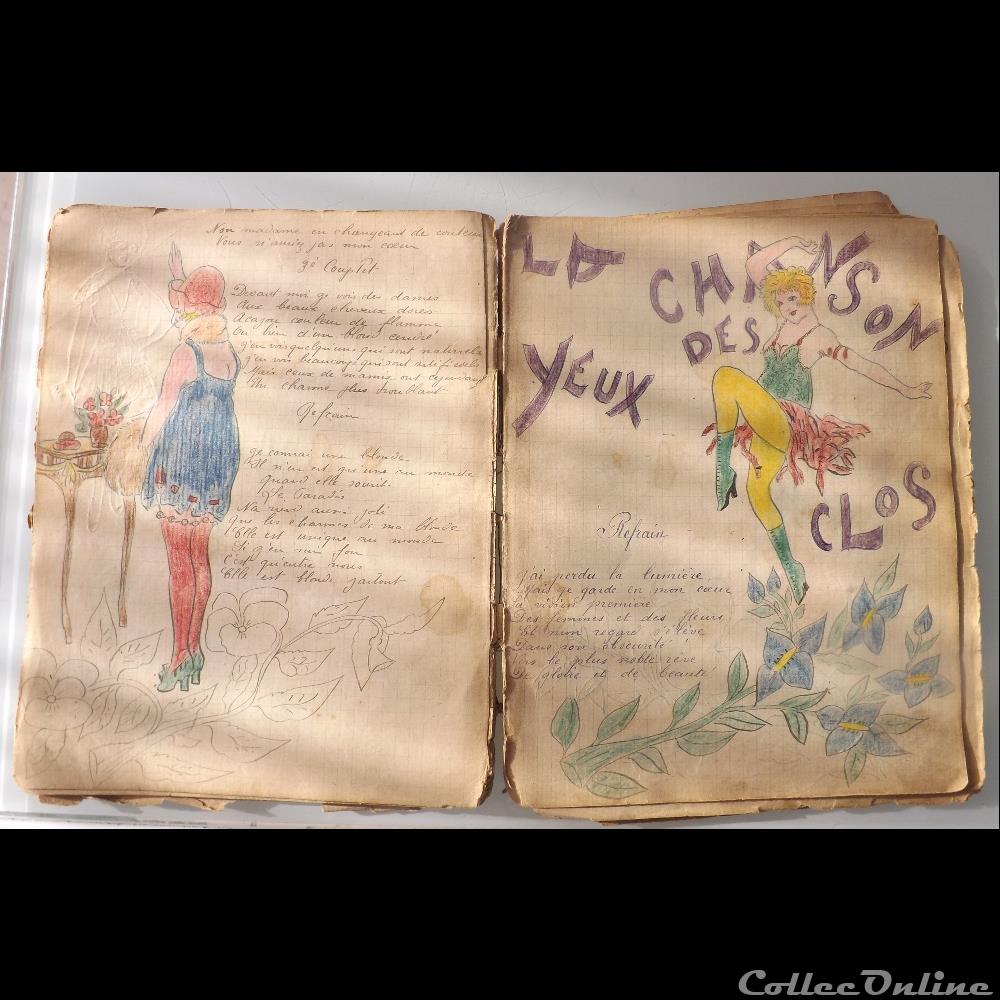 Non madame en changeant de couleur
Vous n'aurez pas mon cœur
3e Couplet
Devant moi je vois des dames
Aux beaux cheveux dorés
Acajou couleur de flamme
Ou bien d'un blond cendré
J'en vois quelqu'uns qui sont naturels
J'en vois beaucoup qui sont
Mais ceux de mamie ont cependant
Un charme plus troublant
Refrain
Je connai une blonde
Il n'en est qu'une au monde
quand elle sourit
Le Paradis
N'a rien aussi joli
Que les charmes de ma blonde
Elle est unique au monde
Si j'en suis fou
C'est qu'entre nous
Elle est blonde partout
LA CHANSON
DES
YEUX
CLOS
Refrain
J'ai perdu la lumière
Mais je garde en mon cœur
la vision première
Des femmes et des fleurs
Et mon regard s'élève
Dans son obscurité
Vers le plus noble rêve
De gloire et de beauté
ColleeOnline